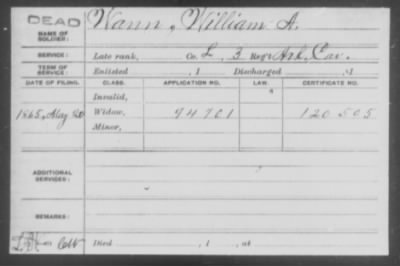 DEAD
NAME OF SOLDIER: Wann, William A.
SERVICE: Late rank, Co. L, 3 Reg't Ark. Cav.
TERM OF SERVICE: Enlisted , 1 Discharged , 1
DATE OF FILING. CLASS. APPLICATION NO. LAW. CERTIFICATE NO.
Invalid,
1865, May 20 Widow, 94701 120505
Minor,
ADDITIONAL SERVICES:
REMARKS:
Died , 1 , at